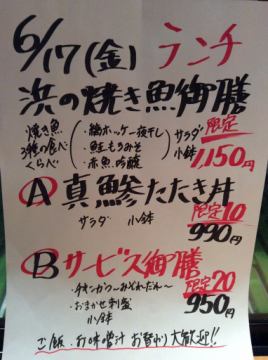 6/17(金) ランチ
浜の焼き魚御膳 限定
焼き魚3種の食べくらべ
・縞ホッケ一夜干し
・鮭もろみそ
・赤魚吟醸
サラダ 小鉢
1,150円
Ⓐ真鯵たたき丼
サラダ 小鉢
限定10
990円
Ⓑサービス御膳
・チキンカツ〜みぞれだれ〜
・おまかせ刺盛
小鉢
限定20
950円
ご飯・お味噌汁 お替わり大歓迎!!